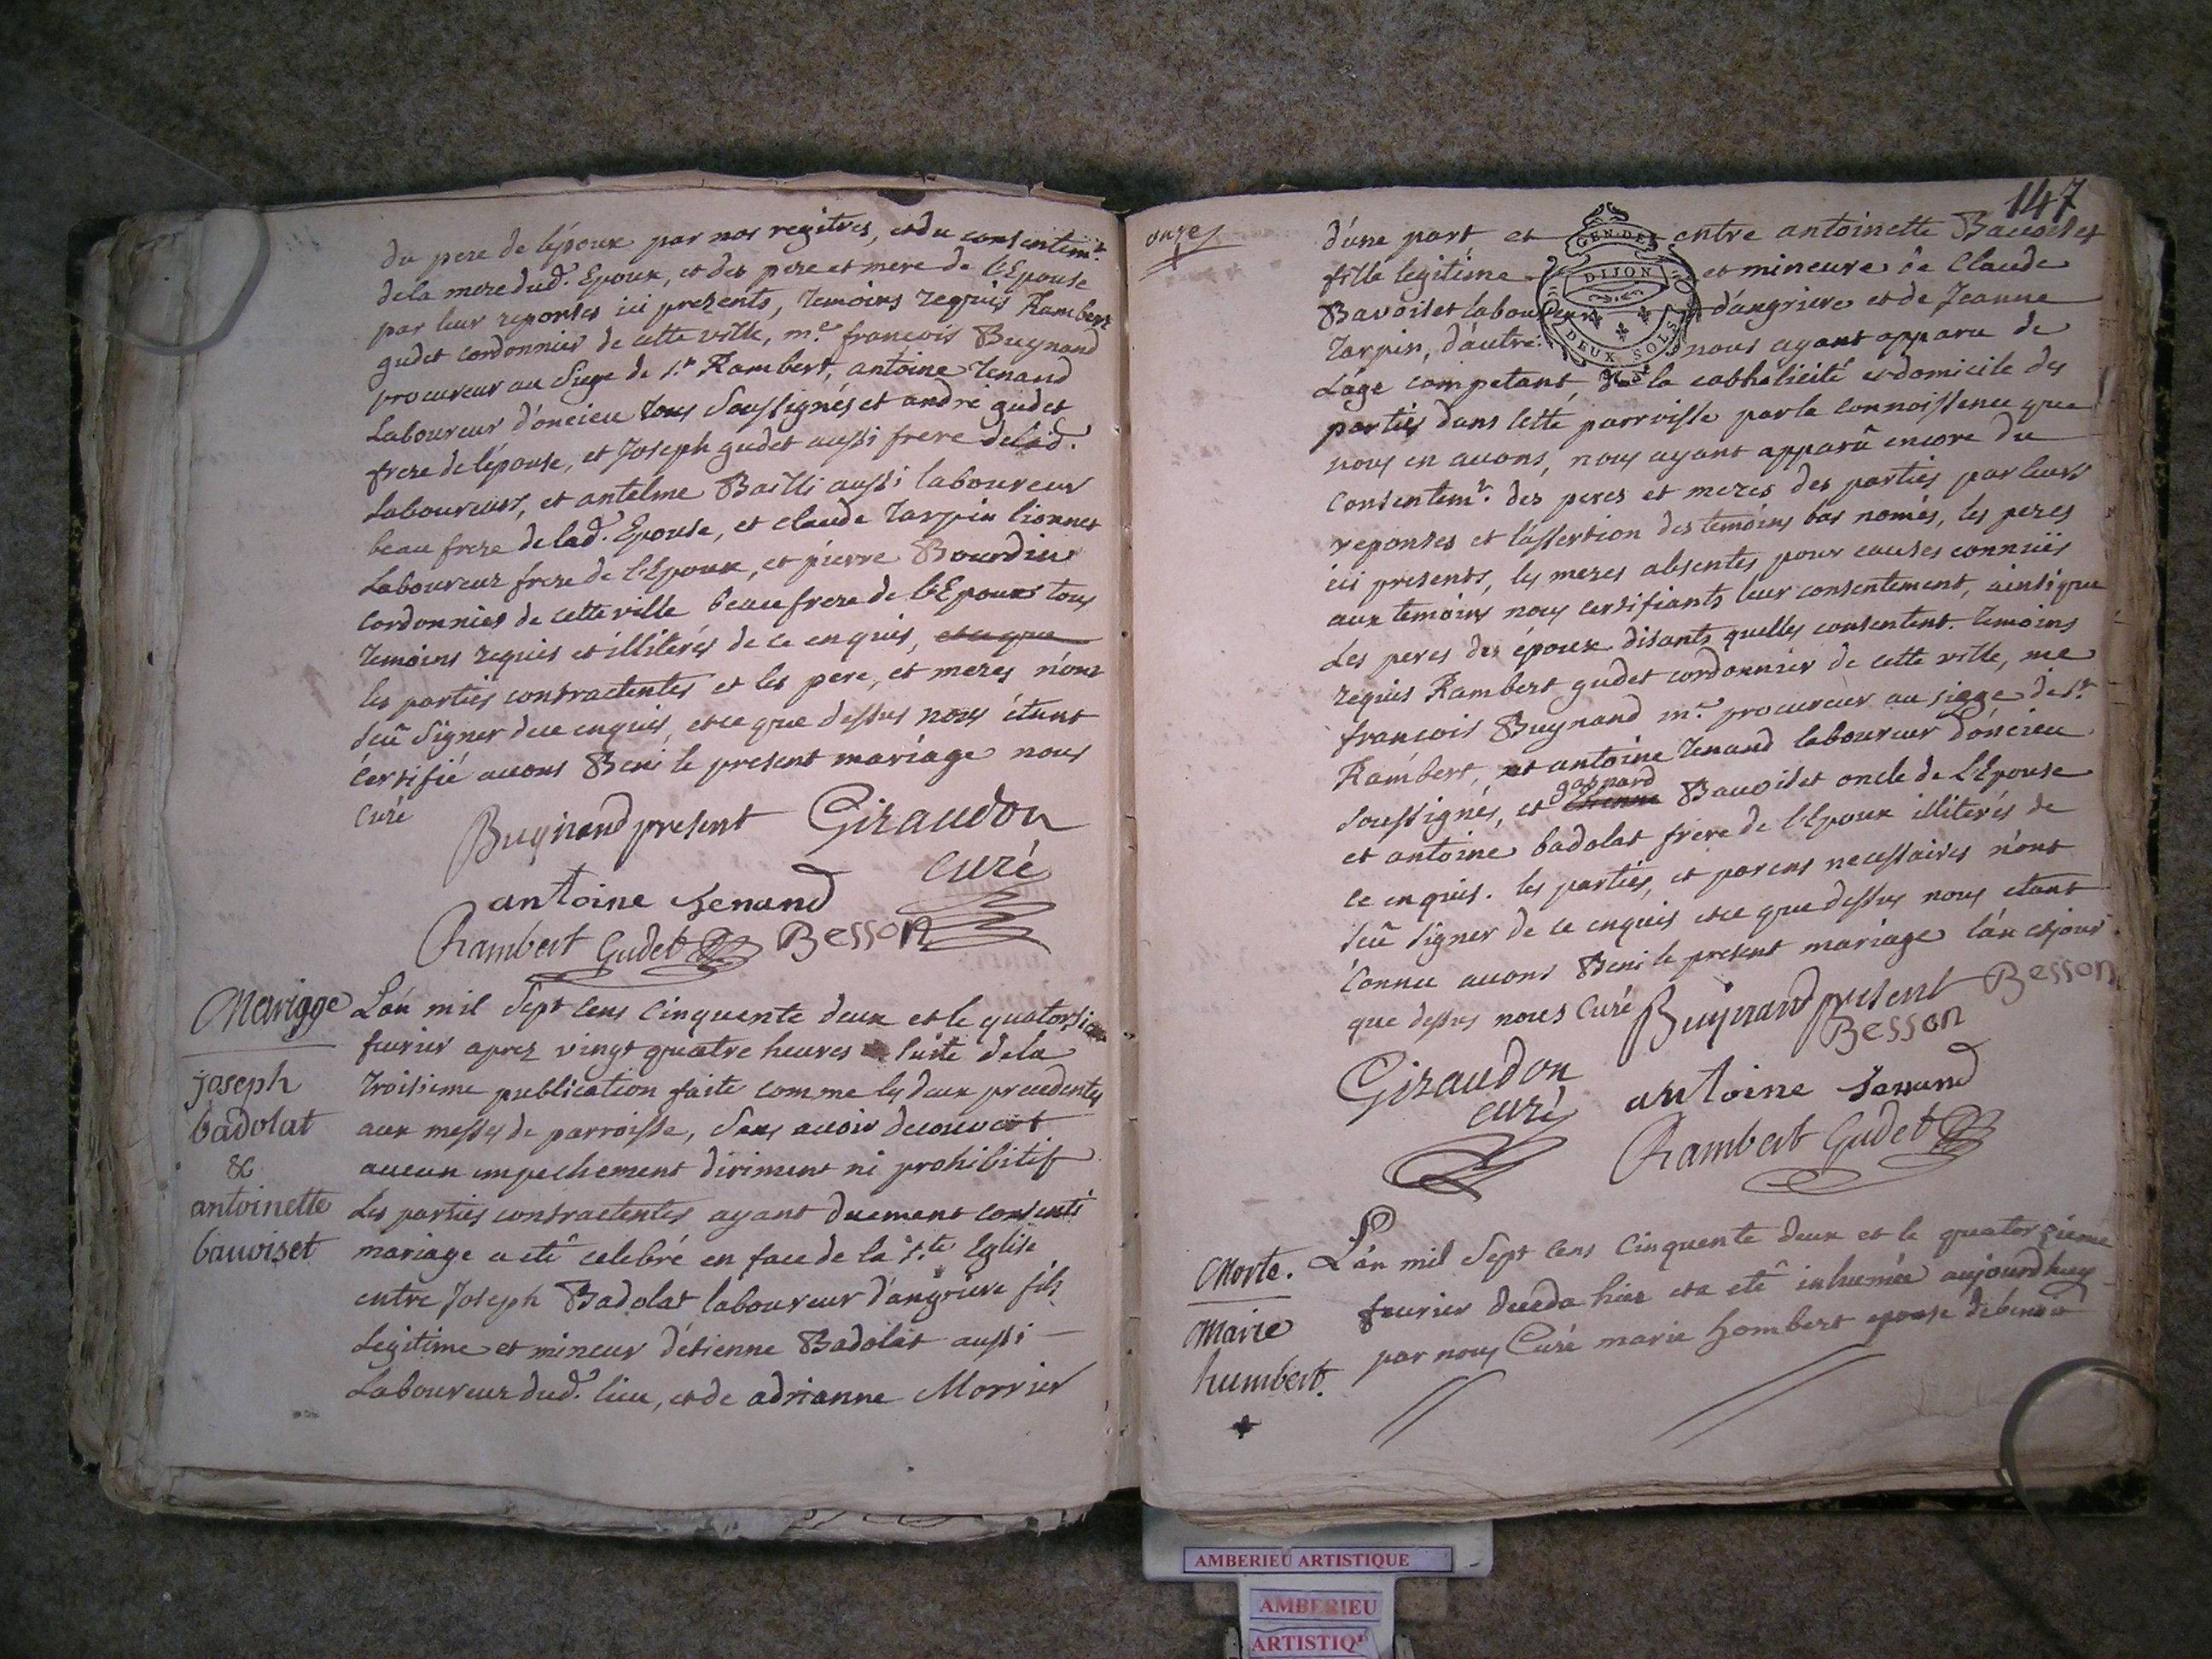 du pere de l'époux par nos regitres, et du consentem.t
de la mere dud. Epoux, et des pere et mere de l'Epouse
par leur reponses ici presents, temoins requis Rambert
gudet cordonnier de cette ville, m.e françois Buynand
procureur au siege de s.t Rambert, antoine Tenand
Laboureur d'oncieu tous soussignés et andré gudet
frere de l'épouse, et Joseph gudet aussi frere de lad.
Laboureurs, et antelme Bailli aussi laboureur
beau frere de lad. Epouse, et claude Tarpin lionnet
Laboureur frere de l'Epoux, et pierre Bourdin
cordonnier de cette ville beau frere de l'Epoux tous
temoins requis et illiterés de ce enquis, et ce que
les parties contractentes et les pere, et meres n'ont
sçû signer de ce enquis, et ce que dessus nous étant
certifié avons Beni le present mariage nous
curé
Buynand present Giraudon
curé
antoine tenand
Rambert Gudet Besson
Mariage
joseph
badolat
&
antoinette
bauvoiset
L'an mil sept cens cinquente deux et le quatorzieme
fevrier aprez vingt quatre heures suite de la
troisieme publication faite comme les deux precedentes
aux messes de parroisse, sans avoir decouvert
aucun empechement diriment ni prohibitif
Les parties contractentes ayant duement consenti
mariage a eté celebré en face de la s.te Eglise
entre Joseph Badolat laboureur d'angriere fils
Legitime et mineur d'étienne Badolat aussi
Laboureur dud. lieu, et de adrianne Morrier
147
onze
d'une part, et entre antoinette Bauvoiset
fille legitime et mineure de Claude
Bavoiset laboureur d'angriere et de Jeanne
Tarpin, d'autre: nous ayant apparu de
L'age competant, de la catholicité et domicile des
parties dans cette parroisse par la connoissence que
nous en avons, nous ayant apparû encore du
consentem.t des peres et meres des parties par leurs
reponses et l'assertion des temoins bas només, les peres
ici presents, les meres absentes pour causes connües
aux temoins nous certifiants leur consentement, ainsi que
Les peres des époux disants quelles consentent. Temoins
requis Rambert gudet cordonnier de cette ville, me
françois Buynand m.e procureur au siege de s.t
Rambert, et antoine Tenand laboureur d'oncieu
gaspard
soussignés, et etienne Bauvoiset oncle de L'Epouse
et antoine badolat frere de l'Epoux illiterés de
ce enquis. les parties, et parens necessaires n'ont
sçû signer de ce enquis et ce que dessus nous etant
connu avons Beni le present mariage l'an et jour
que dessus nous Curé Buynand present Besson
Besson
Giraudon
curé antoine tenand
Rambert Gudet
Morte.
Marie
humbert.
L'an mil sept cens cinquente deux et le quatorzieme
fevrier deceda hier et a eté inhumée aujourdhuy
par nous Curé marie hombert epouse de benoit
GEN. DE
DIJON
DEUX SOLS
AMBERIEU ARTISTIQUE
AMBERIEU
ARTISTIQ